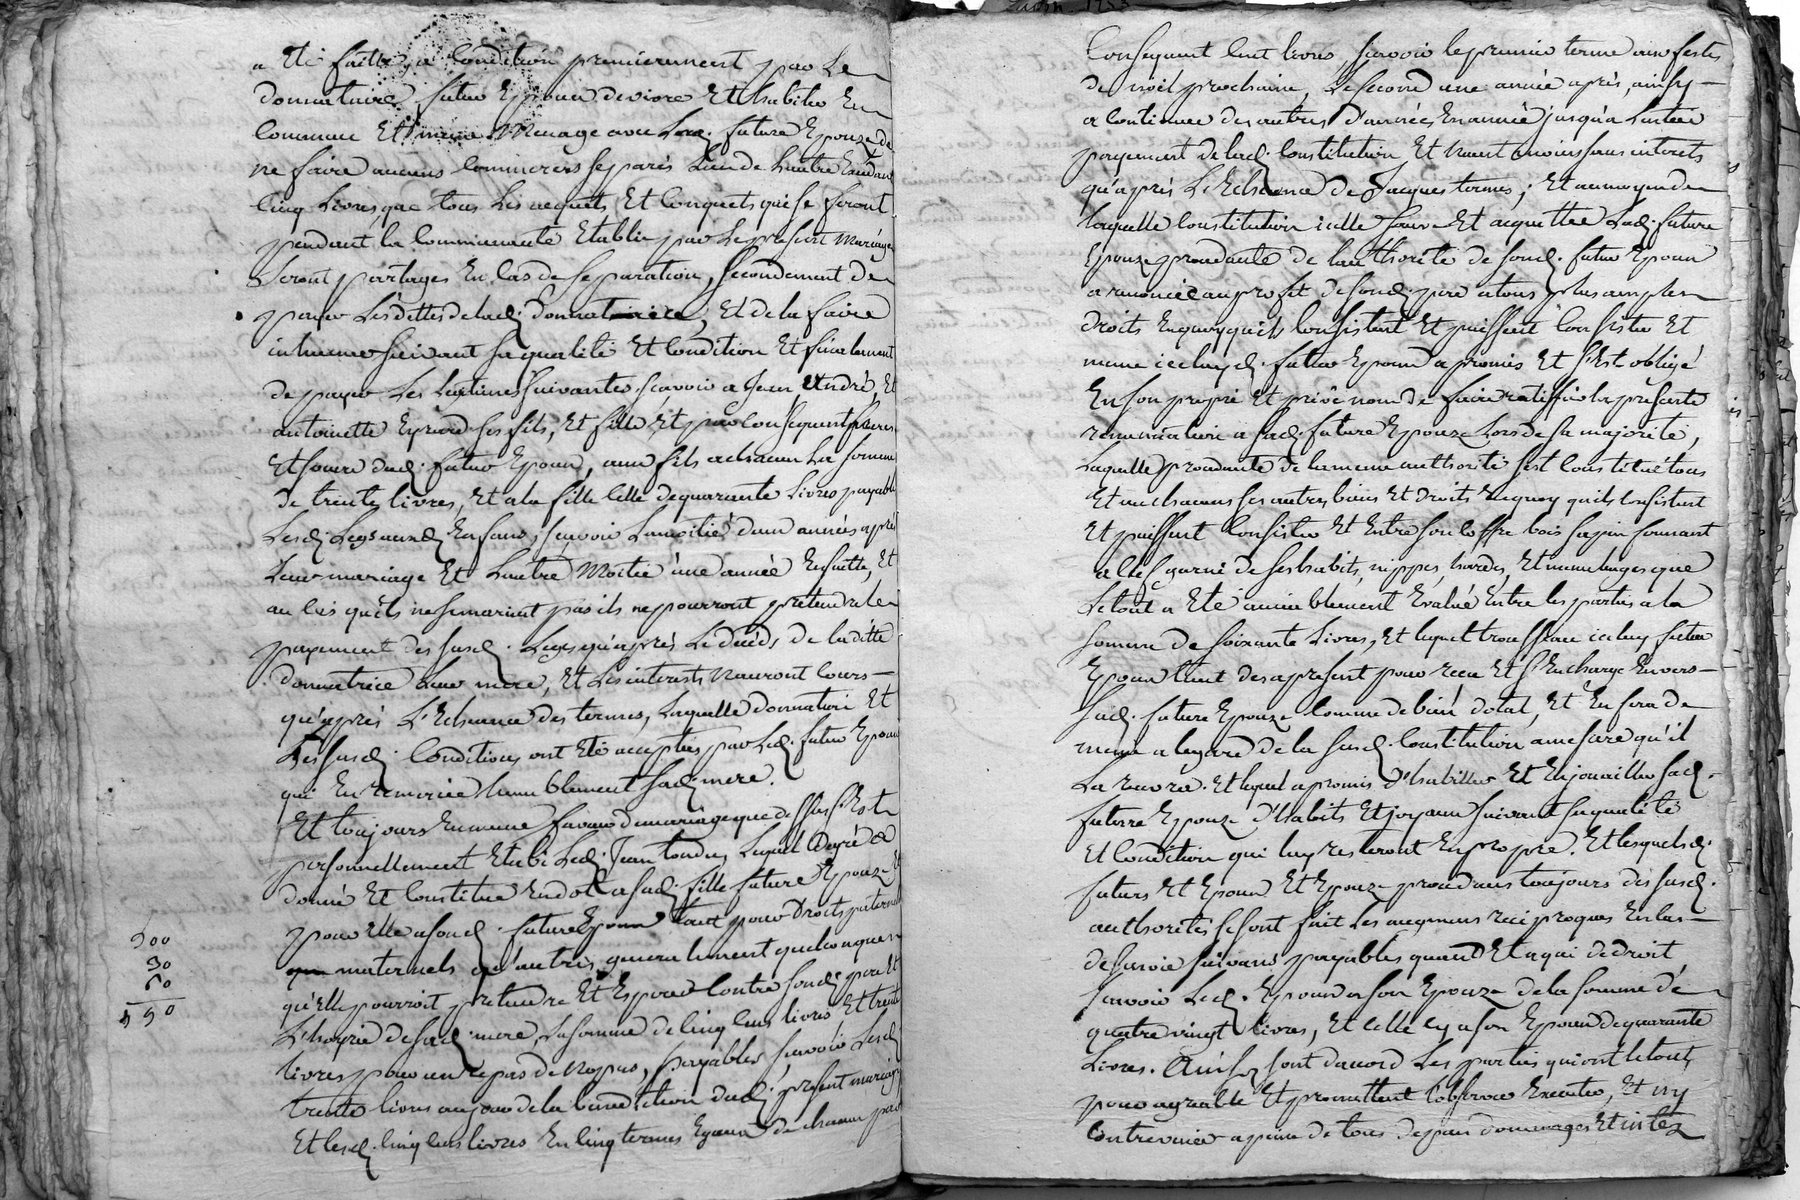 a été faitte a condition premierement par Le
donnataire futur Epoux de vivre Et habiter En
commun Et meme Menage avec Lad. future Epouze de
ne faire aucuns commerces separés Lun de Lautre
cinq Livres que tous Les acquets Et Conquets qui se feront
pendant la Communauté Etablie par Le present Mariage
Seront partages En Cas de Separation, Secondement de
payer Les dettes de lad. donnatrice, Et de la faire
inhumer suivant sa qualité Et Condition Et finalement
de payer Les Legitimes suivantes scavoir a Jean, André, Et
antoinette ses fils, Et fille Et par Consequent freres
Et soeur dud. futur Epoux, aux fils a chacun La somme
de trente livres, Et a la fille Celle de quarante Livres payable
Lesd. Legs auxd. Enfans, scavoir La moitié dans année après
Leur mariage Et Lautre Moitié une année Ensuitte, Et
au Cas qu'ils ne se marient pas ils ne pourront pretendre le
payement des susd. Legs qu'après Le décéds de laditte
donnatrice Leur mere, Et Les interests nauront Cours
qu'après L'Echeance des termes, Laquelle donnation Et
Les susd. Conditions ont Eté acceptées par Led. futur Epoux
qui En remercie humblement sad. mere.
Et toujours En meme faveur de mariage que dessus s'Est
personnellement Etabli Led. Jean Lequel de gré a
donné Et Constitué En dot a sad. fille future Epouze Et
pour Elle a sond. futur Epoux tant pour Droits paternels
maternels qu'autres generalement quelconques
qu'Elle pourroit pretendre Et Esperer Contre sond. pere Et
L'hoyrie de sad. mere, La somme de Cinq Cens livres Et trente
livres pour un repas de Nopces, payables, scavoir Lesd.
trente livres au jour de la benediction dud. present mariage
Et lesd. Cinq Cens livres En Cinq termes Egaux de chacun par
500
30
60
590
Consequent Cent livres scavoir le premier terme aux festes
de noel prochaine, Le second une année après, ainsy
a continuer des autres d'année En année jusqu'a Lentier
payement de lad. Constitution, Et sans interets
qu'après L'Echeance de chaques termes; Et au moyen de
laquelle Constitution icelle Et acquittée Lad. future
Epouze procedante de lauthorité de sond. futur Epoux
a renoncé au profit de sond. pere a tous plus amples
Droits En quoy qu'ils Consistent Et puissent Consister Et
meme iceluy d. futur Epoux a promis Et s'Est obligé
En son propre Et privé nom de faire ratiffier la presente
renonciation a sad. future Epouze Lors de sa majorité,
Laquelle procedante de la meme authorité s'est Constitué tous
Et un chacuns ses autres biens Et droits En quoy qu'ils Consistent
Et puissent Consister Et Entre son Coffre bois sapin fermant
a Clef garni de ses habits, nippes, hardes, Et menu linge que
Le tout a Eté amiablement Evalué Entre les parties a la
somme de soixante Livres, Et lequel trousseau iceluy futur
Epoux tient des a present pour recu Et s'En charge Envers
sad. future Epouze Comme de bien dotal, Et En fera de
meme a legard de la susd. Constitution a mesure qu'il
La recevra. Et lequel a promis d'habiller Et Enjouailler sad.
future Epouze d'habits Et joyaux suivant sa qualité
Et Condition qui luy resteront En propre. Et lesquels d.
futurs Et Epoux Et Epouze procedans toujours des susd.
authorités se sont fait Les augmens reciproques En Cas
de survie suivans payables quand Et a qui de droit
scavoir Led. Epoux a son Epouze de la somme de
quatre vingt livres, Et Celle cy a son Epoux de quarante
Livres. Ainsy sont d'accord Les parties qui ont le tout
pour agreable Et promettent l'observer Executer, Et ny
Contrevenir a peine de tous depans dommages Et intez